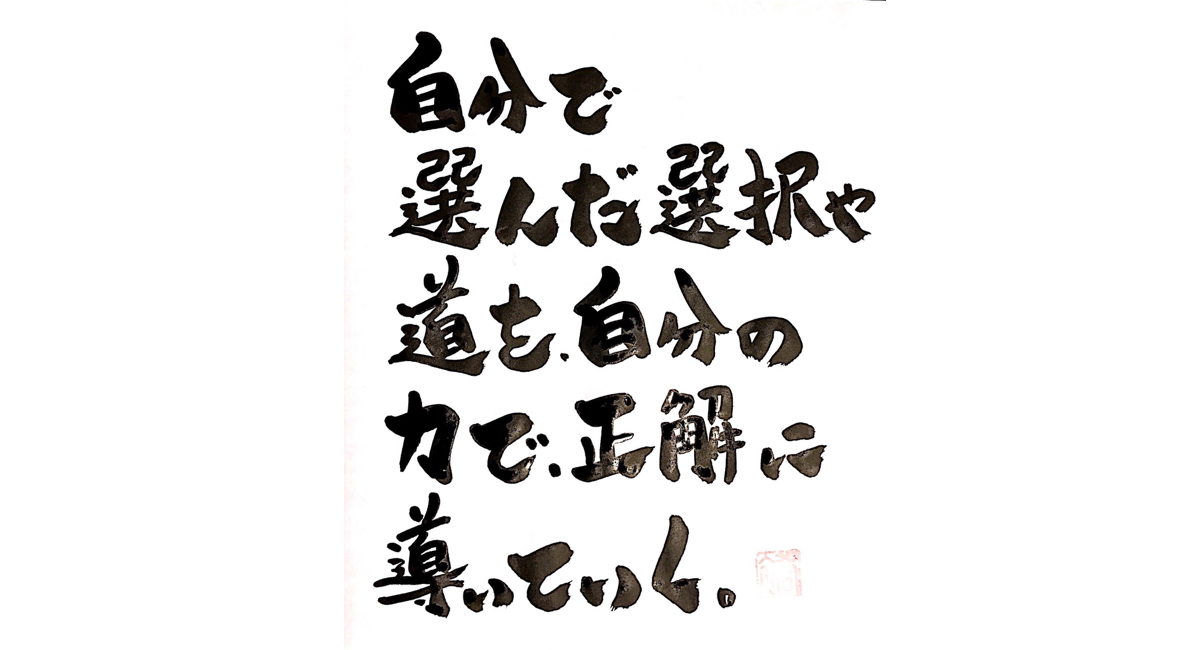 自分で
選んだ選択や
道を、自分の
力で、正解に
導いていく。